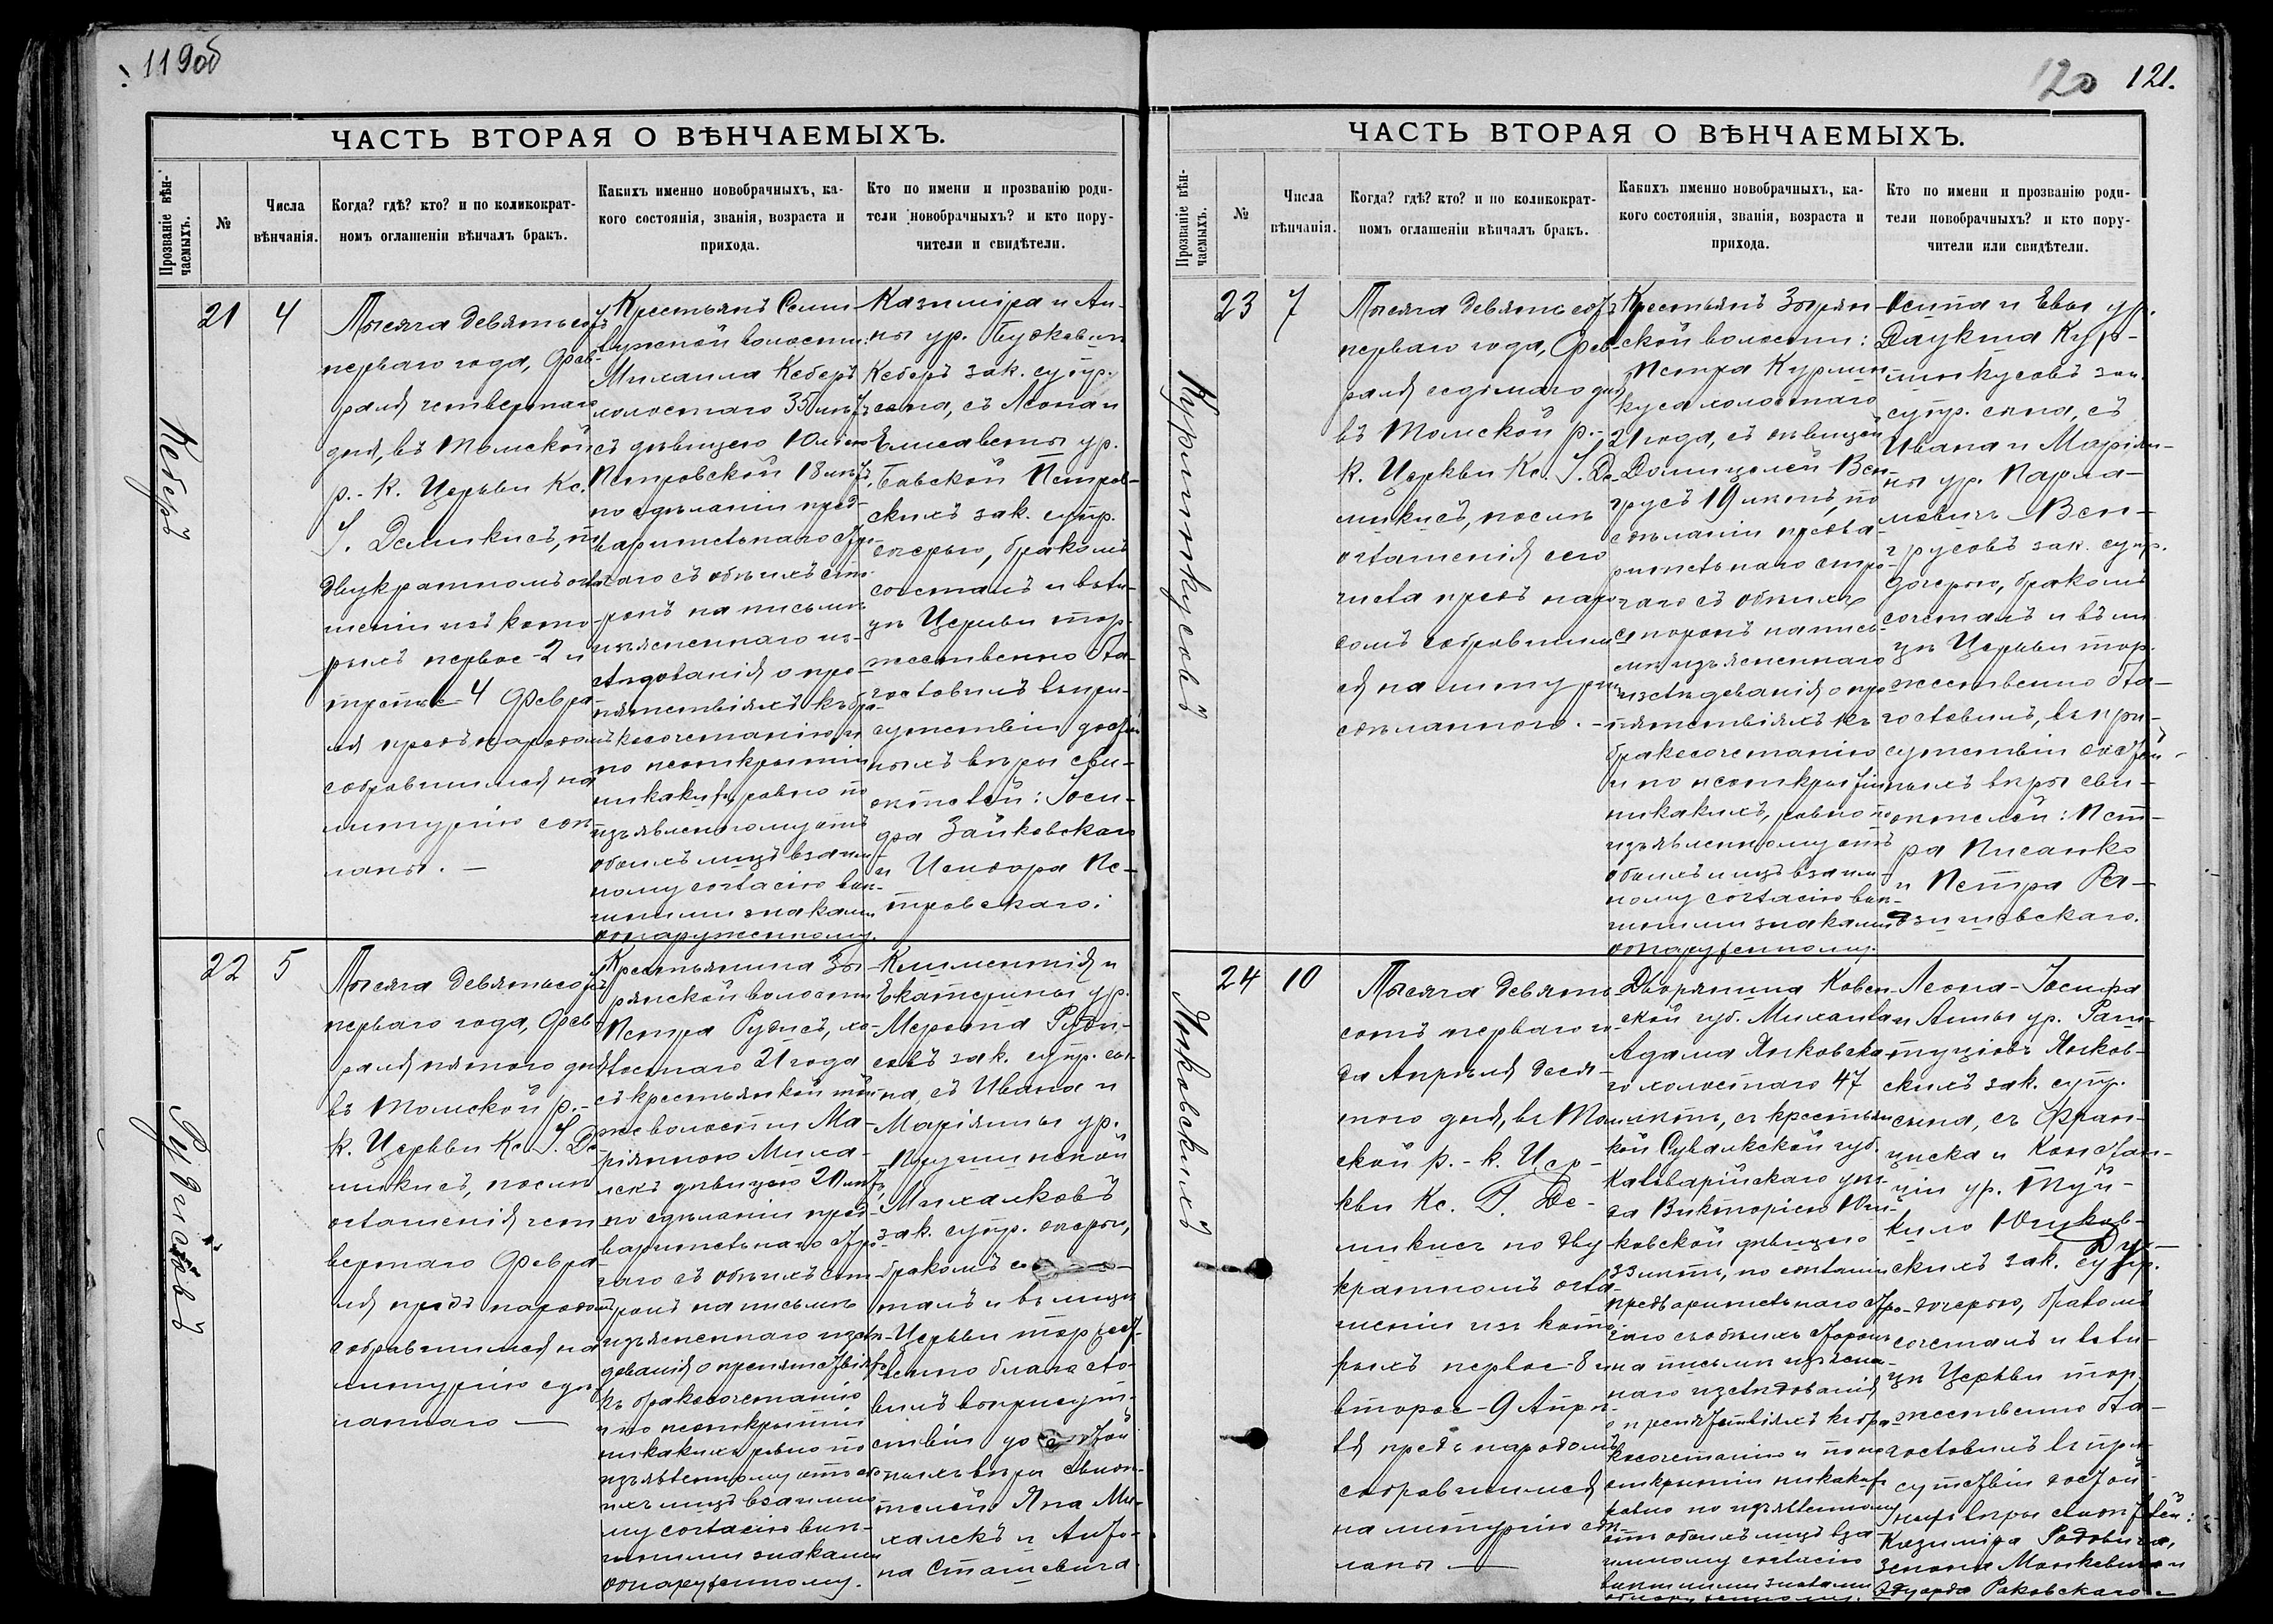 119об
ЧАСТЬ ВТОРАЯ О ВѢНЧАЕМЫХЪ.
Прозваніе вѣн-
чаемыхъ.
№
Числа
вѣнчанія.
Когда? гдѣ? кто? и по коликократ-
номъ оглашеніи вѣнчалъ бракъ.
Какихъ именно новобрачныхъ, ка-
кого состоянія, званія, возраста и
прихода.
Кто по имени и прозванію роди-
тели новобрачныхъ? и кто пору-
чители и свидѣтели.
Кеберъ
21
4
Тысяча девятьсотъ
перваго года, Фев-
раля четвертаго
дня, въ Томской
р.-к. Церкви Кс.
І. Демикисъ, по
двукратномъ огла-
шеніи изъ кото-
рыхъ первое-2 и
третье-4 Февра-
ля предъ народомъ
собравшимся на
литургію сдѣ-
ланы.-
Крестьянъ Семи-
лужной волости:
Михаила Кеберъ
холостаго 35 лѣтъ
съ дѣвицею Юліею
Петровской 18 лѣтъ,
по сдѣланіи пред-
варительнаго стро-
гаго съ обѣихъ сто-
ронъ на письмѣ
изъясненнаго из-
слѣдованія о пре-
пятствіяхъ къ бра-
косочетанію и
по неоткрытіи
никакихъ, равно по
изъявленному отъ
обоихъ лицъ взаим-
ному согласію внѣ-
шними знаками
обнаруженному.
Казиміра и Ан-
ны ур.
Кеберъ зак. супр.
сына, съ Леона и
Елисаветы ур.
Бавской Петров-
скихъ зак. супр.
дочерью, бракомъ
сочеталъ и въ ли-
цѣ Церкви тор-
жественно бла-
гословилъ въ при-
сутствіи достой-
ныхъ вѣры сви-
дѣтелей: Іоси-
фа Зайковскаго
и Исидора Пе-
тровскаго.
Рудисовъ
22
5
Тысяча девятьсотъ
перваго года, Фев-
раля пятого дня
въ Томской р.-
к. Церкви Кс. І. Де-
микисъ, послѣ
оглашенія чет-
вертаго Февра-
ля предъ народомъ
собравшимся на
литургію сдѣ-
ланнаго-
Крестьянина Зы-
рянской волости
Петра Рудисъ, хо-
лостаго 21 года
съ крестьянкой той
же волости Ма-
ріянною Миха-
лекъ дѣвицею 20 лѣтъ,
по сдѣланіи пред-
варительнаго стро-
гаго съ обѣихъ сто-
ронъ на письмѣ
изъясненнаго изслѣ-
дованія о препятствіяхъ
къ бракосочетанію
и по неоткрытіи
никакихъ равно по
изъявленному отъ обо-
ихъ лицъ взаимно-
му согласію внѣ-
шними знаками
обнаруженному.
Климентія и
Екатерины ур.
Мерона Руди-
совъ зак. супр. сы-
на, съ Ивана и
Маріянны ур.
Михалковъ
зак. супр. дочерью,
бракомъ со
талъ и въ лицѣ
Церкви торжест-
венно благосло-
вилъ въ присут-
ствіи достой
ныхъ вѣры свидѣ-
телей: Яна Ми-
халекъ и Анто-
на Сташевича
120 121.
ЧАСТЬ ВТОРАЯ О ВѢНЧАЕМЫХЪ.
Прозваніе вѣн-
чаемыхъ.
№
Числа
вѣнчанія.
Когда? гдѣ? кто? и по коликократ-
номъ оглашеніи вѣнчалъ бракъ.
Какихъ именно новобрачныхъ, ка-
кого состоянія, званія, возраста и
прихода.
Кто по имени и прозванію роди-
тели новобрачныхъ? и кто пору-
чители или свидѣтели.
Курминкусовъ
23
7
Тысяча девятьсотъ
перваго года, Фев-
раля седьмаго дня
въ Томской р.-
к. Церкви Кс. І. Де-
микисъ, послѣ
оглашенія сего
числа предъ наро-
домъ собравшим-
ся на литургію
сдѣланного.-
Крестьянъ Зырян-
ской волости:
Петра Курмин-
куса холостаго
21 года, съ дѣвицей
Домицелей Вен-
грусъ 19 лѣтъ, по
сдѣланіи предва-
рительнаго стро-
гаго съ обѣихъ
сторонъ на пись-
мѣ изъясненнаго
изслѣдованія о пре-
пятствіяхъ къ
бракосочетанію
и по неоткрытіи
никакихъ, равно по
изъявленному отъ
обоихъ лицъ взаим-
ному согласію внѣ-
шними знаками
обнаруженному.
Осипа и Евы ур.
Даукша Кур-
минкусовъ зак.
супр. сына, съ
Ивана и Маріян-
ны ур. Парла-
мовичъ Вен-
грусовъ зак. супр.
дочерью, бракомъ
сочеталъ и въ ли
цѣ Церкви тор-
жественно бла-
гословилъ, въ при-
сутствіи достой-
ныхъ вѣры сви-
дѣтелей: Пет-
ра Писанко
и Петра Ра-
дзишевскаго.
Янковскихъ
24
10
Тысяча девять-
сотъ перваго го-
да Апрѣля деся-
того дня, въ Том-
ской р.-к. Цер-
кви Кс. І. Де-
микисъ по дву
кратномъ огла-
шеніи изъ кото-
рыхъ первое-8 и
второе-9 Апрѣ-
ля предъ народомъ
собравшимся
на литургію сдѣ-
ланы-
Дворянина Ковен-
ской губ. Михаила
Адама Янковска-
го холостаго 47
лѣтъ, съ крестьян-
кой Сувалкской губ.
Кальварійскаго уѣз-
да Викторіею Юш-
ковской дѣвицею
33 лѣтъ, по сдѣланіи
предварительнаго стро-
гаго съ обѣихъ сторонъ
на письмѣ изъясне-
наго изслѣдованія
о препятствіяхъ къ бра-
косочетанію и по не
открытіи никакихъ
равно по изъявленному
отъ обоихъ лицъ вза-
имному согласію
внѣшними знаками
обнаруженному.
Леона-Іосифа
и Анны ур.
Янков-
скихъ зак. супр.
сына, съ Фран-
циска и Констан-
ціи ур.
Юшков-
скихъ зак. супр.
дочерью, бракомъ
сочеталъ и въ ли-
цѣ Церкви тор
жественно бла-
гословилъ въ при-
сутствіи достой-
ныхъ вѣры свидѣтелей:
Казиміра Радовича,
Зенона Манкевича и
Эдуарда Раковскаго-